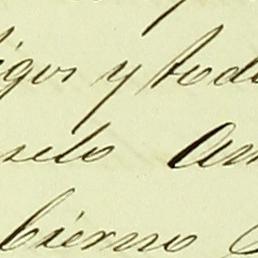 igos y todo
selo Am
bierno